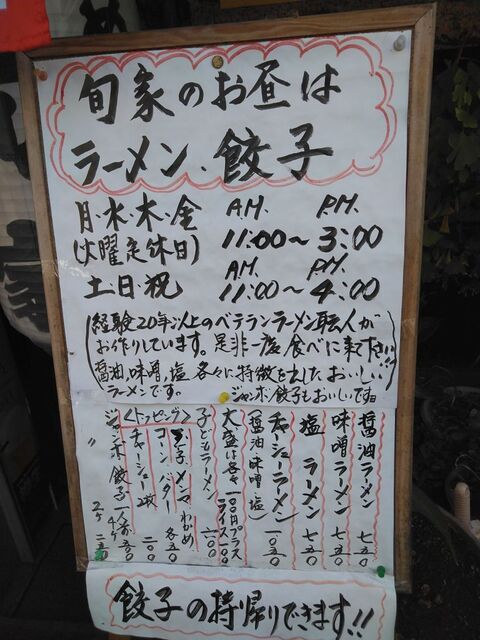 旬家のお昼は
ラーメン、餃子
月・水・木・金 A.M. 11:00〜P.M. 3:00
(火曜定休日)
土日祝 A.M. 11:00〜P.M. 4:00
経験20年以上のベテランラーメン職人が
お作りしています。是非一度食べに来て下さい!!
醤油、味噌、塩、各々に特徴を出したおいしい
ラーメンです。
ジャンボ餃子もおいしいです
醤油ラーメン 七五〇
味噌ラーメン 七五〇
塩ラーメン 七五〇
チャーシューラーメン 一〇五〇
(醤油・味噌・塩)
大盛は各々一〇〇円プラス
ライス一〇〇
子どもラーメン 六〇〇
<トッピング>
玉子、メンマ、わかめ
コーン、バター 各五〇
チャーシュー2枚 二〇〇
ジャンボ餃子一人前4ケ 五〇〇
〃 2ケ 二五〇
餃子の持帰りできます!!